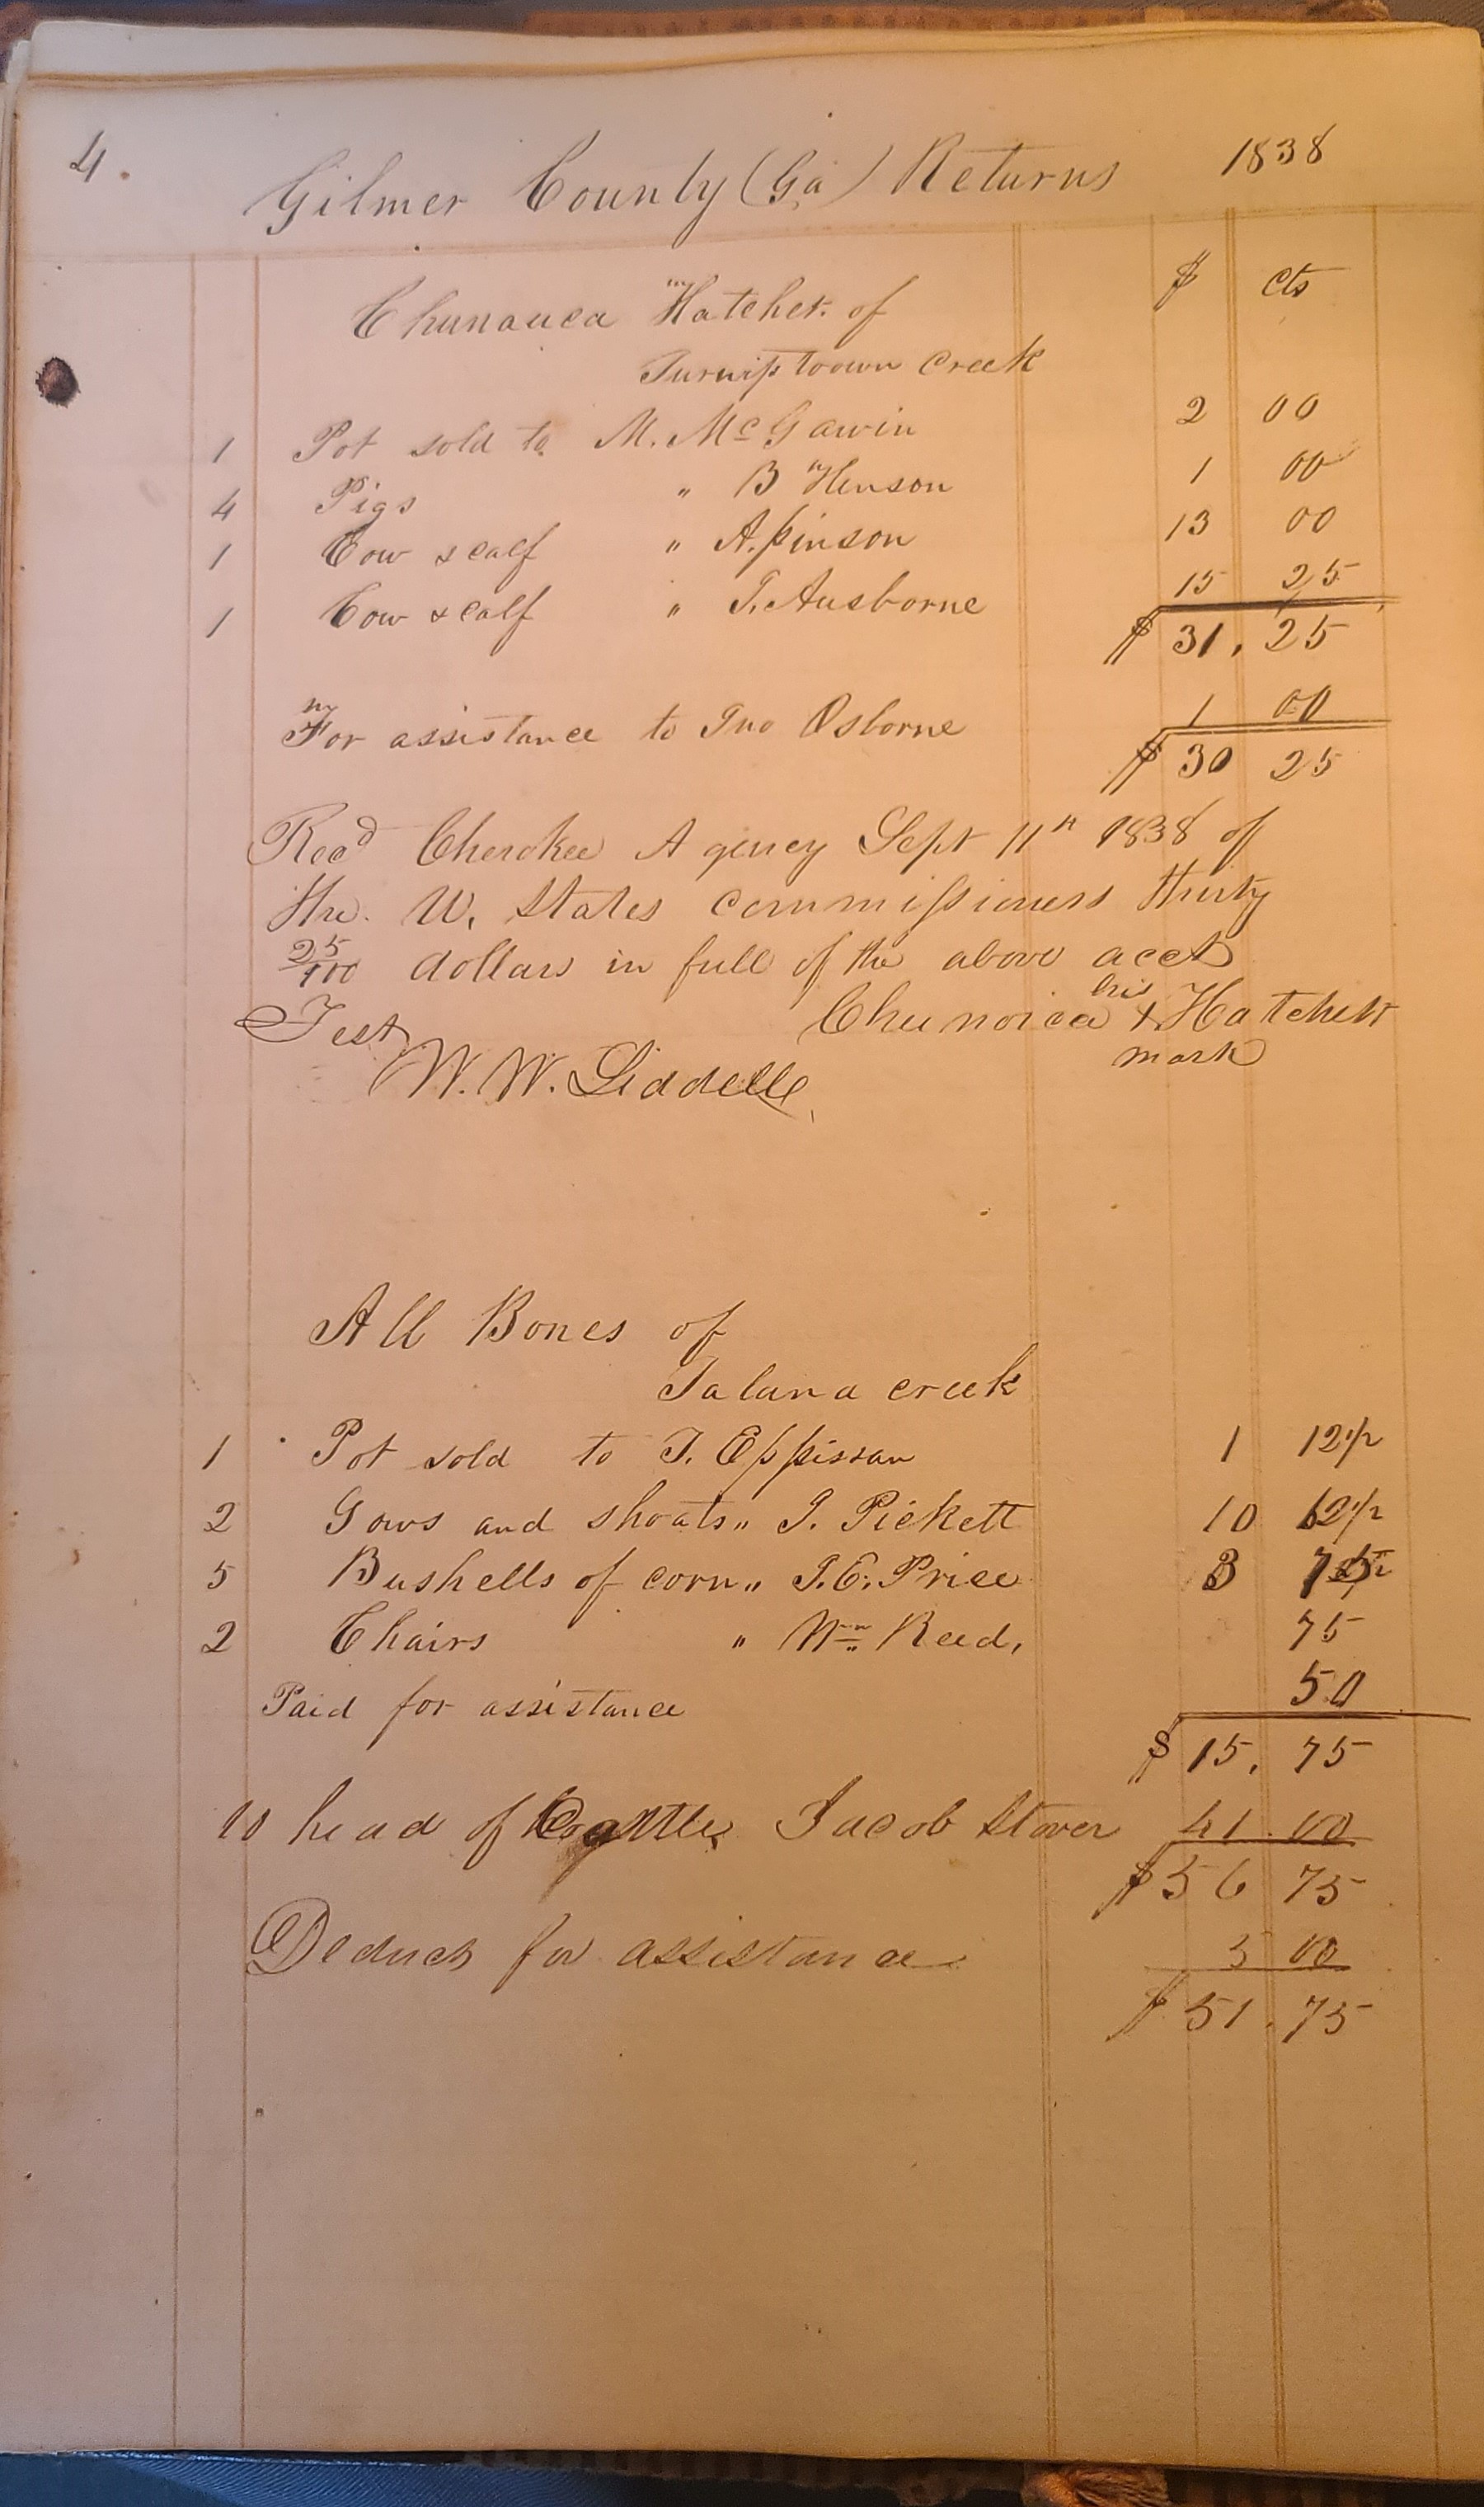 4.
Gilmer County (Ga) Returns 1838
$ cts
Chunauca Hatchet of
Turniptoown Creek
1 Pot sold to M. McGawin 2 00
4 Pigs " B Henson 1 00
1 Cow & calf " A. pinson 13 00
1 Cow & calf " T. Ausborne 15 25
$ 31. 25
For assistance to Jno Osborne 1 00
$ 30 25
Recd Cherokee Agency Sept 11th 1838 of
the U. States commissioners thirty
25/100 dollars in full of the above acct
his
Test Chunoica + Hatchett
mark
W. W. Liddelle
All Bones of
Talana creek
1 Pot sold to T. Eppissan 1 12 1/2
2 Sows and shoats " J. Pickett 10 62 1/2
5 Bushells of corn " J. E. Price 3
2 Chairs " Wm Reed, 75
Paid for assistance 50
$ 15. 75
10 head of Cattle Jacob Stover 41 00
$ 56 75
Deduct for assistance 5 00
$ 51. 75